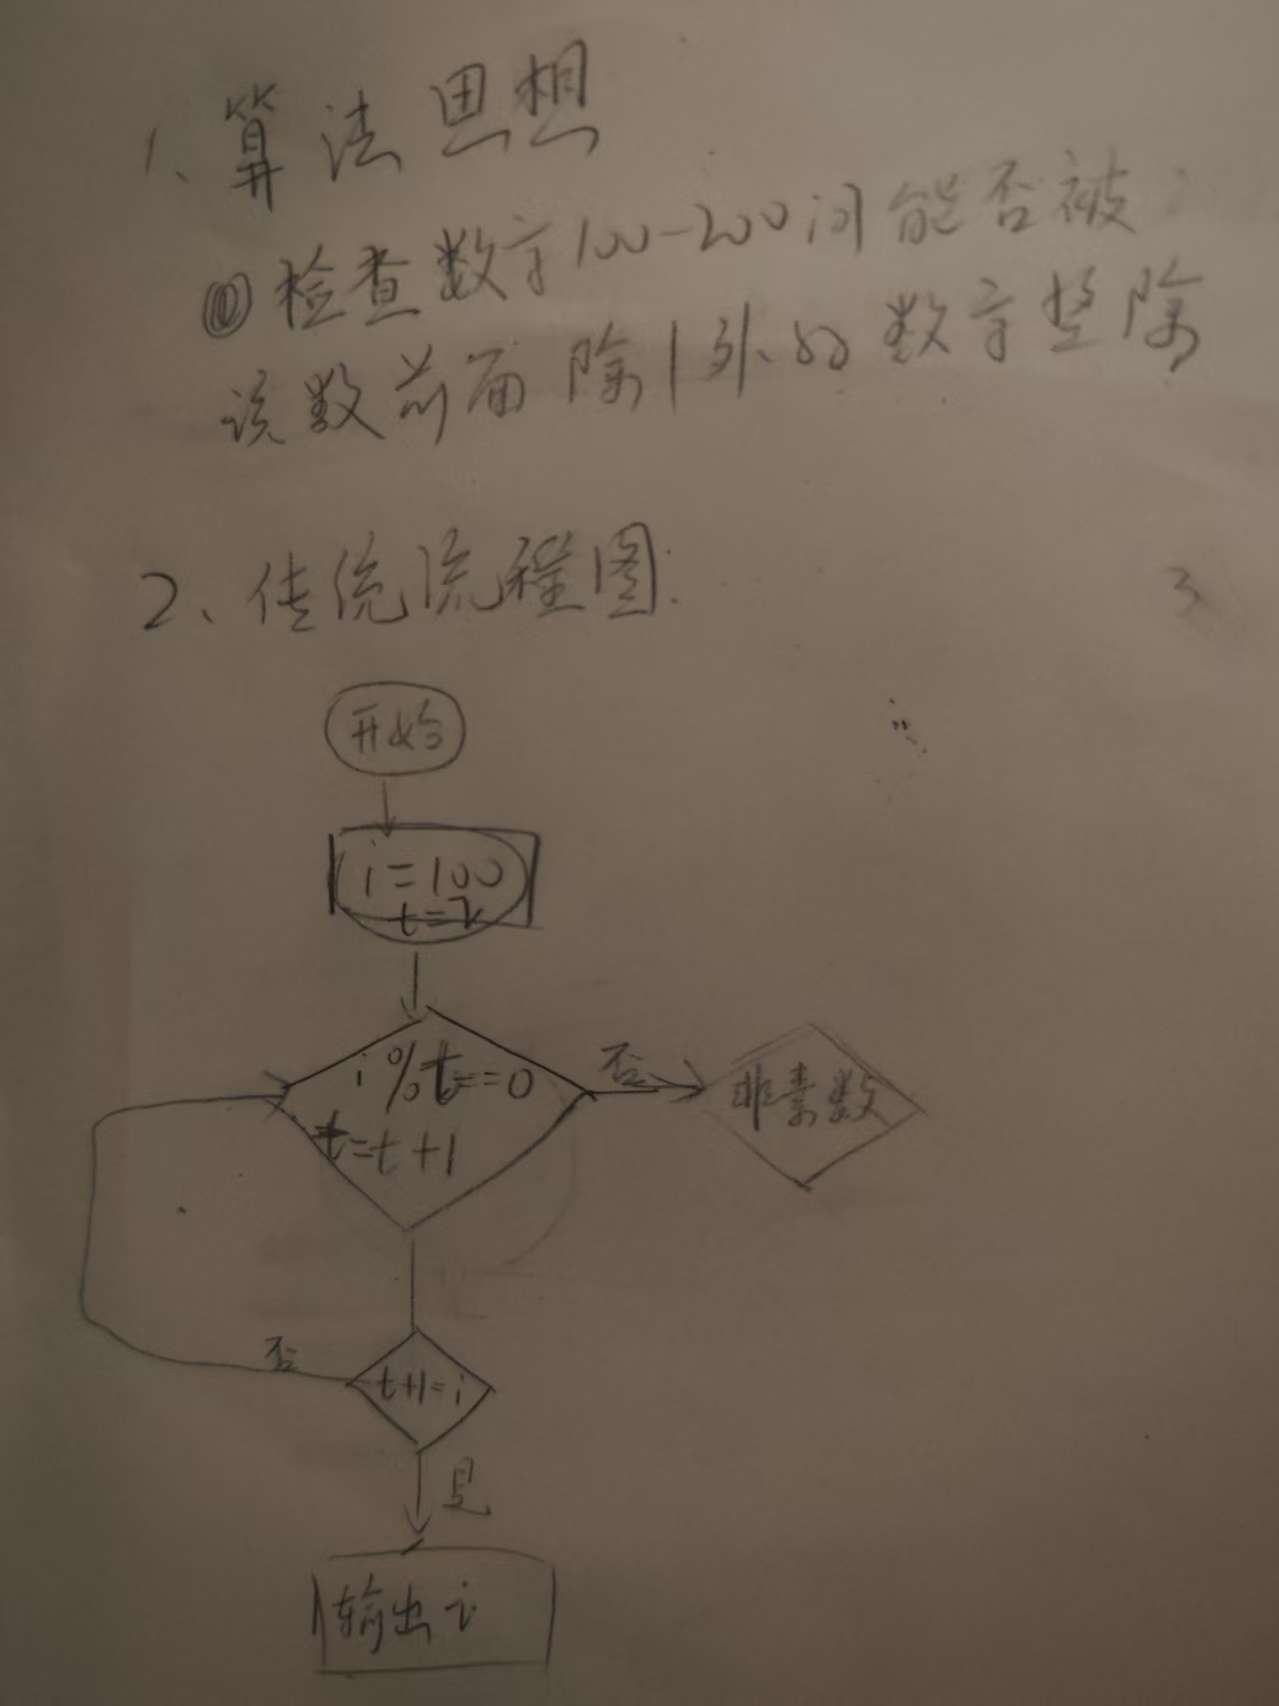 1、算法思想
① 检查数字100-200间能否被
该数前面除1外的数字整除
2、传统流程图:
3
开始
i=100
t=2
i%t==0
否
非素数
t=t+1
否
t+1=i
是
输出i